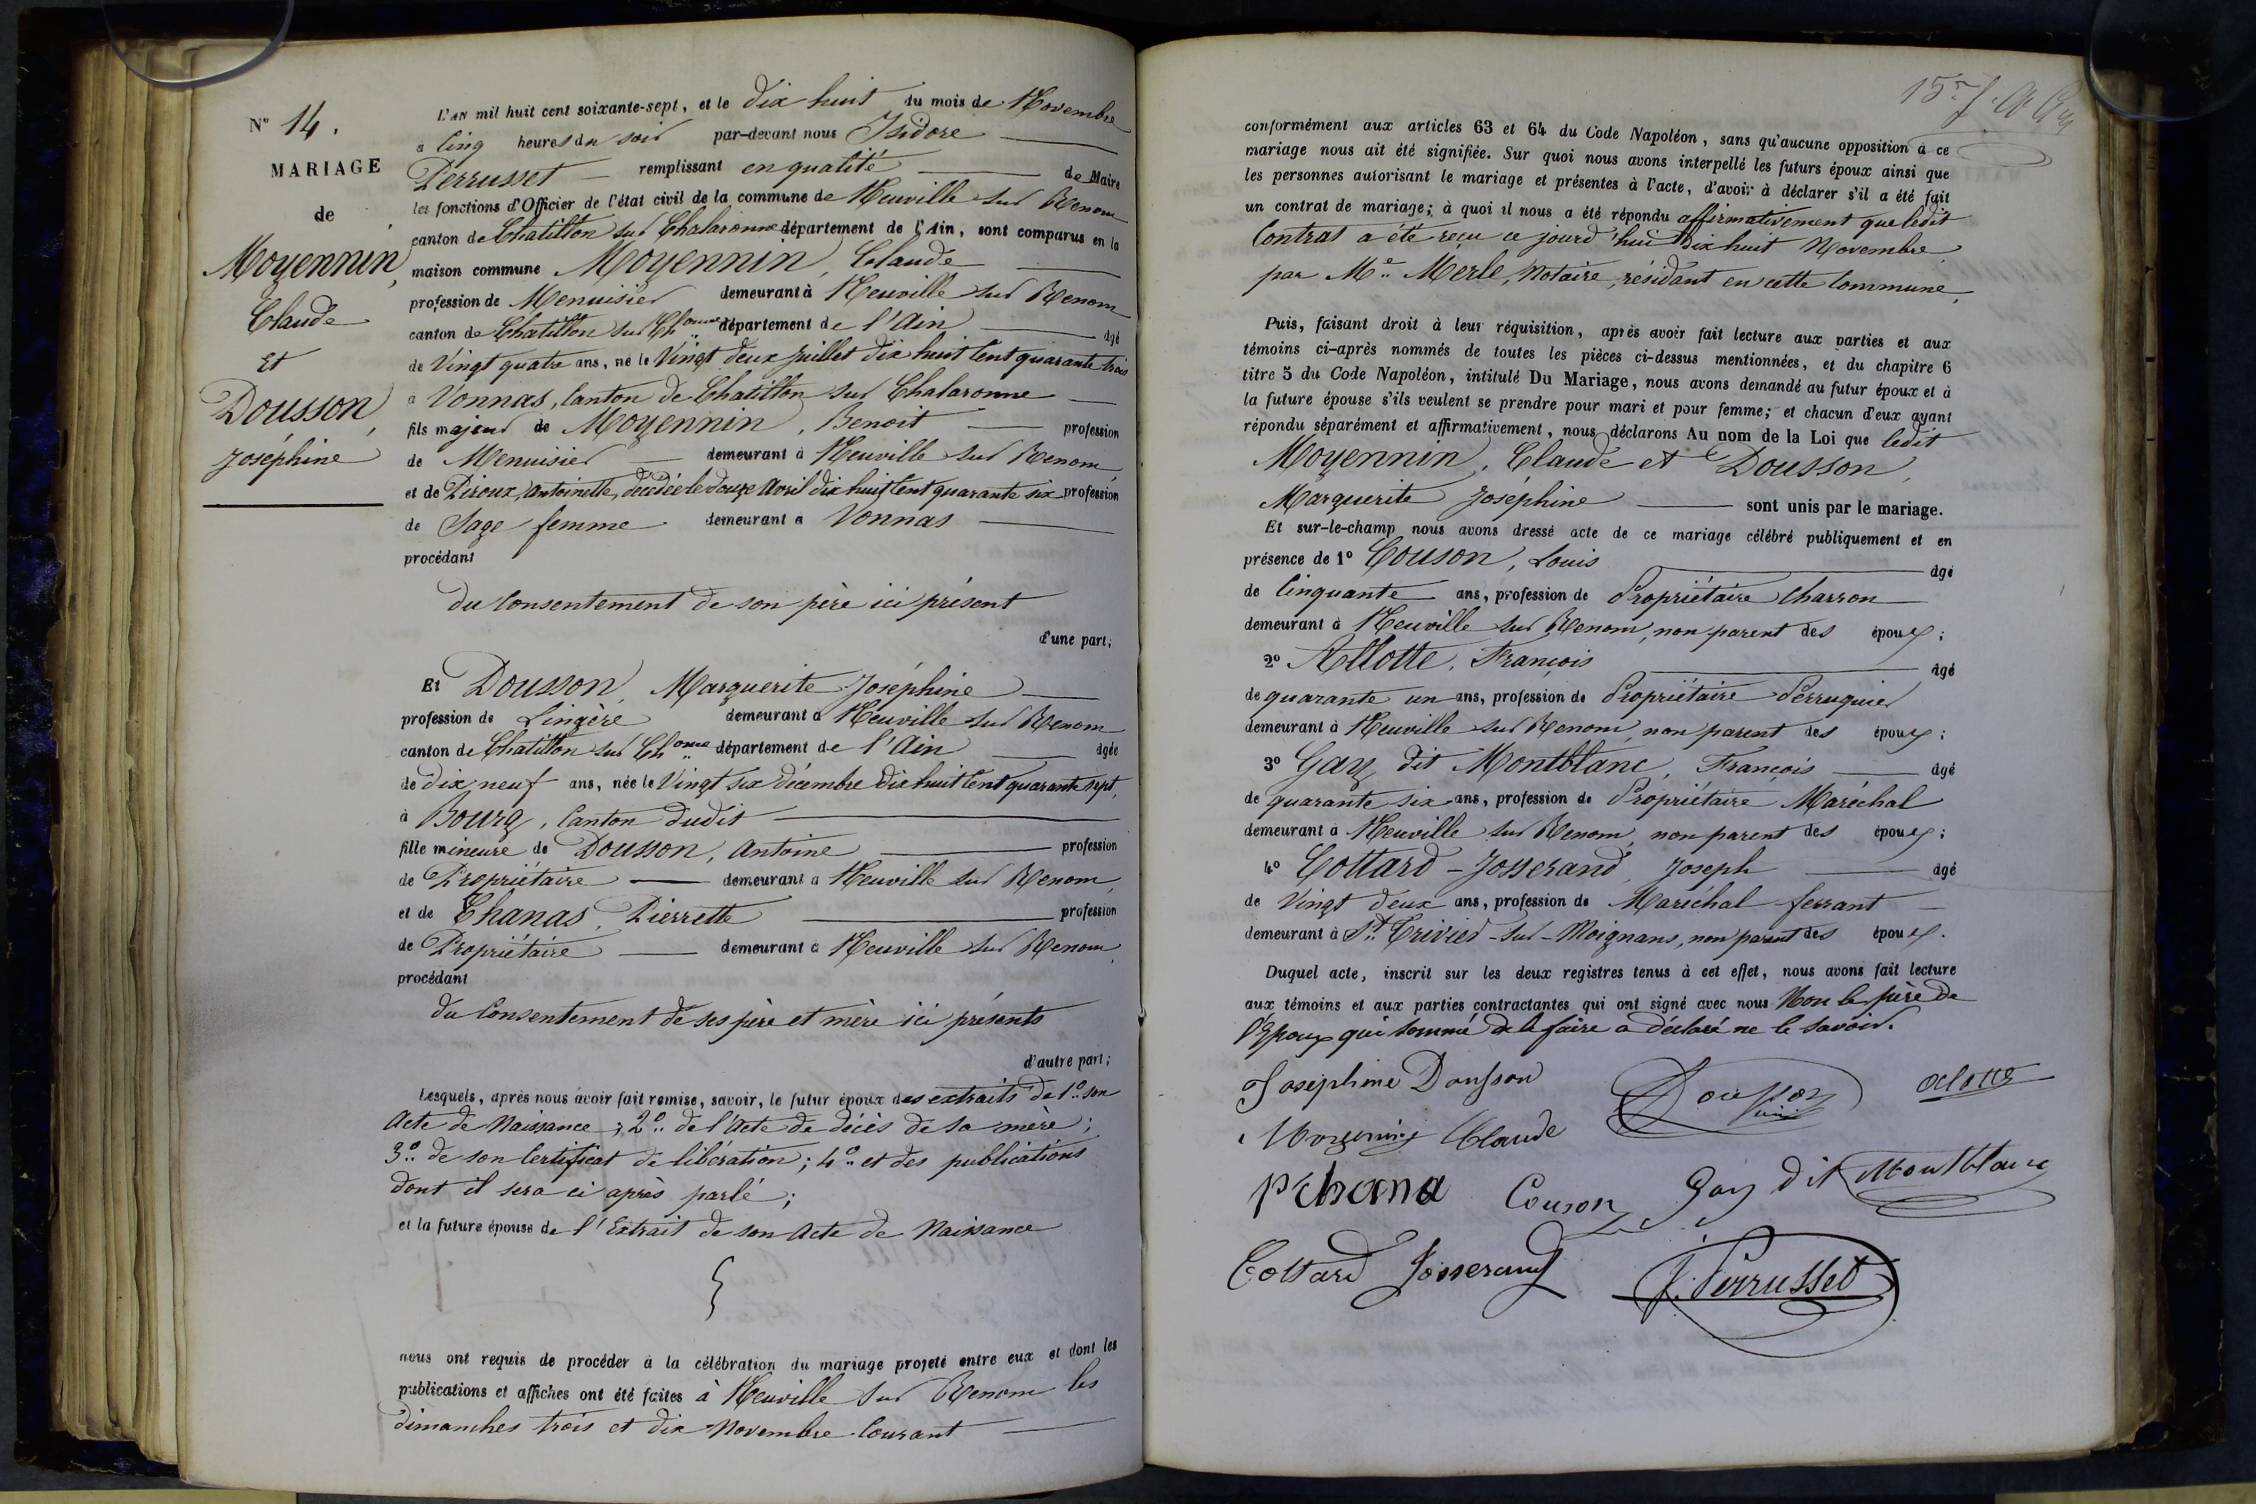 N° 14.
MARIAGE
de
Moyennin,
Claude
Et
Dousson,
Joséphine
L'AN mil huit cent soixante-sept, et le dix huit du mois de Novembre
a Cinq heures du soir par-devant nous Isidore
Perrusset remplissant en qualité de Maire
les fonctions d'Officier de l'état civil de la commune de Neuville sur Renom
canton de Chatillon sur Chalaronne département de l'Ain, sont comparus en la
maison commune Moyennin, Claude
profession de Menuisier demeurant à Neuville sur Renom
canton de Chatillon sur Chonne département de l'Ain âgé
de Vingt quatre ans, né le Vingt deux Juillet dix huit Cent quarante trois
a Vonnas, Canton de Chatillon sur Chalaronne
fils majeur de Moyennin, Benoit profession
de Menuisier demeurant à Neuville sur Renom
et de Piroux, Antoinette, décédée le douze Avril dix huit Cent quarante six profession
de Sage femme demeurant a Vonnas
procédant
du Consentement de son père ici présent
d'une part;
Et Dousson, Marguerite Joséphine
profession de Lingère demeurant à Neuville sur Renom
canton de Chatillon sur Chonne département de l'Ain âgée
de dix neuf ans, née le Vingt six décembre dix huit Cent quarante sept,
à Bourg, Canton dudit
fille mineure de Dousson, Antoine profession
de Propriétaire demeurant a Neuville sur Renom,
et de Chanas, Pierrette profession
de Propriétaire demeurant à Neuville sur Renom,
procédant
du Consentement de ses père et mère ici présents
d'autre part;
Lesquels, après nous avoir fait remise, savoir, le futur époux des extraits de 1° son
Acte de Naissance; 2° de l'Acte de décès de sa mère;
3° de son Certificat de libération; 4° et des publications
dont il sera ci après parlé;
et la future épouse de l'Extrait de son Acte de Naissance
nous ont requis de procéder à la célébration du mariage projeté entre eux et dont les
publications et affiches ont été faites à Neuville sur Renom les
dimanches trois et dix Novembre Courant
conformément aux articles 63 et 64 du Code Napoléon, sans qu'aucune opposition à ce
mariage nous ait été signifiée. Sur quoi nous avons interpellé les futurs époux ainsi que
les personnes autorisant le mariage et présentes à l'acte, d'avoir à déclarer s'il a été fait
un contrat de mariage; à quoi il nous a été répondu affirmativement que ledit
Contrat a été reçu ce jourd'hui dix huit Novembre
par Me Merle, Notaire, résidant en cette Commune,
Puis, faisant droit à leur réquisition, après avoir fait lecture aux parties et aux
témoins ci-après nommés de toutes les pièces ci-dessus mentionnées, et du chapitre 6
titre 5 du Code Napoléon, intitulé Du Mariage, nous avons demandé au futur époux et à
la future épouse s'ils veulent se prendre pour mari et pour femme; et chacun d'eux ayant
répondu séparément et affirmativement, nous déclarons Au nom de la Loi que ledit
Moyennin, Claude et Dousson,
Marguerite Joséphine sont unis par le mariage.
Et sur-le-champ nous avons dressé acte de ce mariage célébré publiquement et en
présence de 1° Couson, Louis âgé
de Cinquante ans, profession de Propriétaire Charron
demeurant à Neuville sur Renom, non parent des époux;
2° Allotte, François âgé
de quarante un ans, profession de Propriétaire Perruquier
demeurant à Neuville sur Renom, non parent des époux;
3° Gay dit Montblanc, François âgé
de quarante six ans, profession de Propriétaire Maréchal
demeurant à Neuville sur Renom, non parent des époux;
4° Cottard-Josserand, Joseph âgé
de Vingt deux ans, profession de Maréchal ferrant
demeurant à St Trivier-sur-Moignans, non parent des époux.
Duquel acte, inscrit sur les deux registres tenus à cet effet, nous avons fait lecture
aux témoins et aux parties contractantes qui ont signé avec nous Non le père de
l'Epoux qui sommé de le faire a déclaré ne le savoir.
Joséphine Dousson Dousson
Moyennin Claude
pchana Couson Gay dit Montblanc
Cottard Josserand J. Perrusset